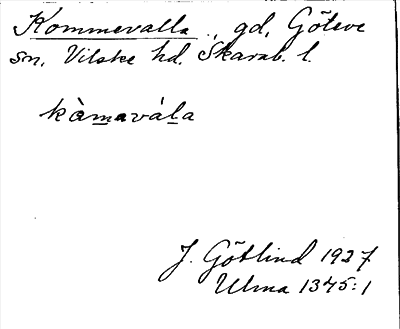 Kommevalla., gd, Göteve
sn, Vilske hd. Skarab. l.
kàmavála
J. Götlind 1927
Ulma 1345:1